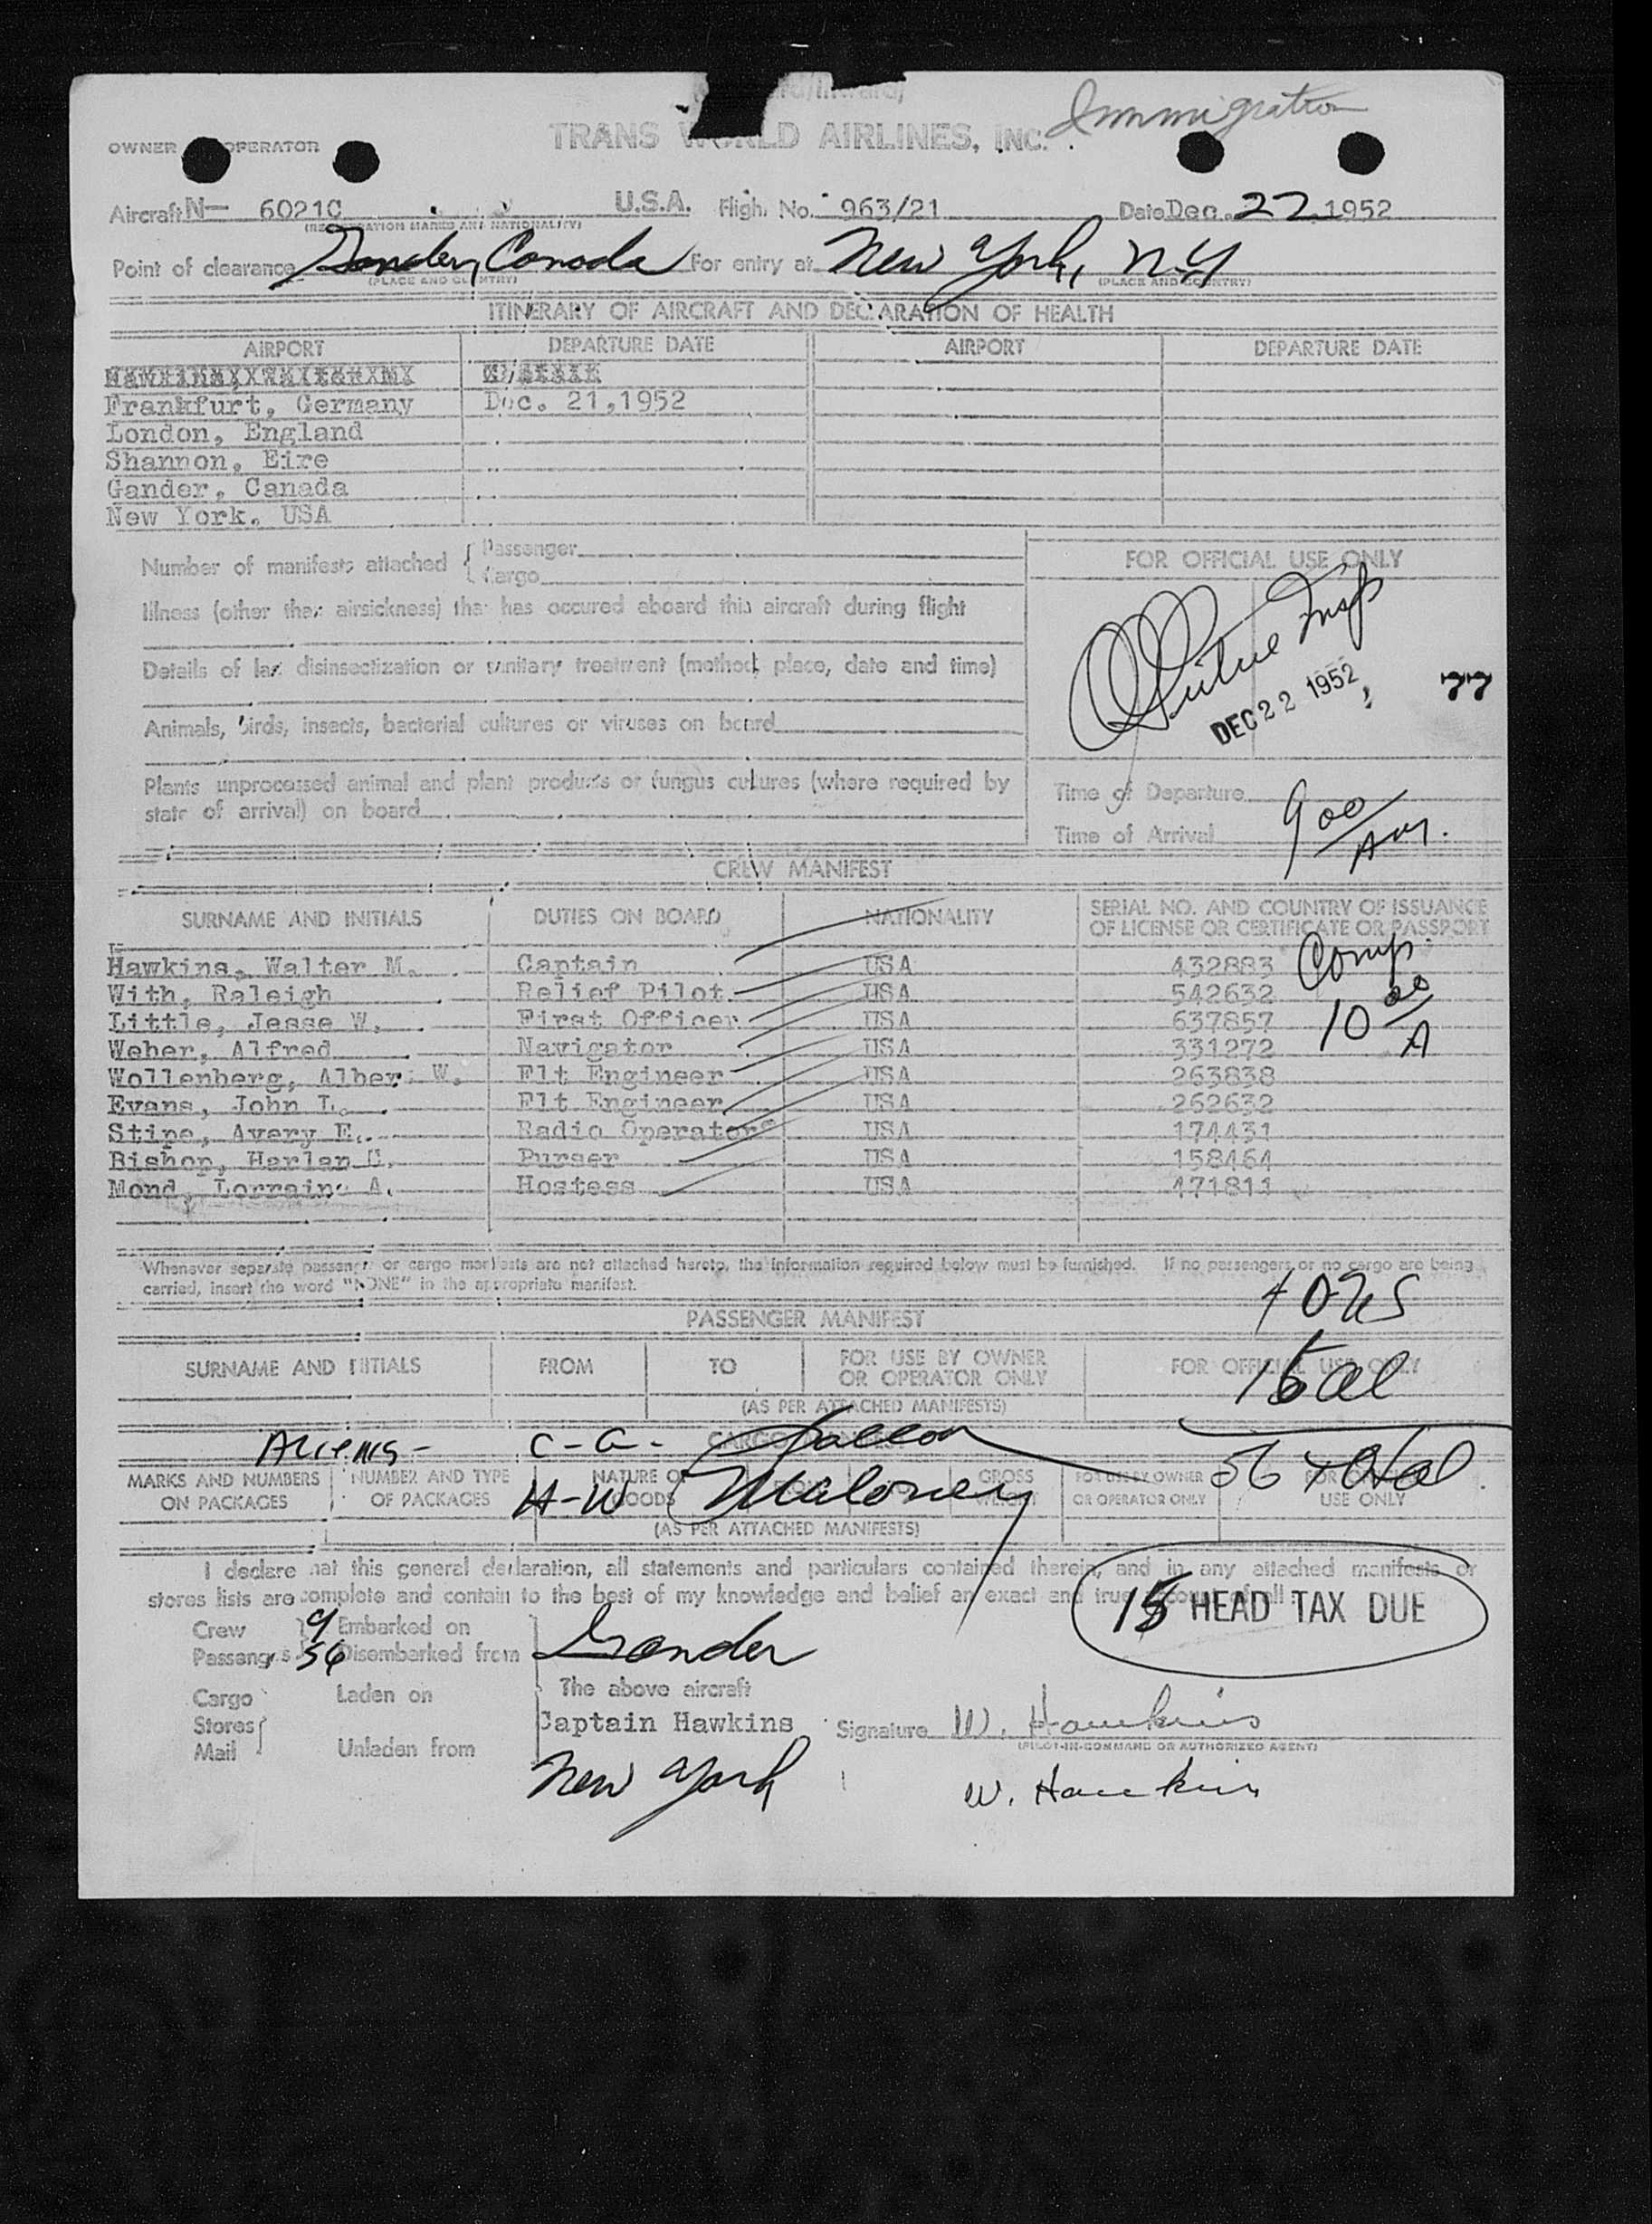 Immigration
OWNER OPERATOR
TRANS WORLD AIRLINES, INC.
Aircraft N- 6021C U.S.A. Flight No. 963/21 Date Dec. 22 1952
(REGISTRATION MARKS AND NATIONALITY)
Point of clearance Gander, Canada For entry at New York, N-Y
(PLACE AND COUNTRY) (PLACE AND COUNTRY)
ITINERARY OF AIRCRAFT AND DECLARATION OF HEALTH
AIRPORT DEPARTURE DATE AIRPORT DEPARTURE DATE
Frankfurt, Germany Dec. 21,1952
London, England
Shannon, Eire
Gander, Canada
New York, USA
Number of manifests attached { Passenger
Cargo
FOR OFFICIAL USE ONLY
Illness (other than airsickness) that has occured aboard this aircraft during flight
Insp
Details of last disinsectization or sanitary treatment (method, place, date and time)
DEC 22 1952
77
Animals, birds, insects, bacterial cultures or viruses on board
Plants unprocessed animal and plant products or fungus cultures (where required by
state of arrival) on board
Time of Departure
Time of Arrival 900 AM.
CREW MANIFEST
SURNAME AND INITIALS DUTIES ON BOARD NATIONALITY SERIAL NO. AND COUNTRY OF ISSUANCE
OF LICENSE OR CERTIFICATE OR PASSPORT
Hawkins, Walter M. Captain USA 432883 Comp.
With, Raleigh Relief Pilot USA 542632
Little, Jesse W. First Officer USA 637857 10 00 A
Weber, Alfred Navigator USA 331272
Wollenberg, Albert W. Flt Engineer USA 263838
Evans, John L. Flt Engineer USA 262632
Stipe, Avery E. Radio Operator USA 174431
Bishop, Harlan C. Purser USA 158464
Mond, Lorraine A. Hostess USA 471811
Whenever separate passenger or cargo manifests are not attached hereto, the information required below must be furnished. If no passengers or no cargo are being
carried, insert the word "NONE" in the appropriate manifest.
PASSENGER MANIFEST
40 US
SURNAME AND INITIALS FROM TO FOR USE BY OWNER
OR OPERATOR ONLY FOR OFFICIAL USE ONLY
16 al
(AS PER ATTACHED MANIFESTS)
Aliens - C-G- CARGO MANIFEST
56 total
MARKS AND NUMBERS
ON PACKAGES NUMBER AND TYPE
OF PACKAGES NATURE OF
GOODS GROSS
WEIGHT FOR USE BY OWNER
OR OPERATOR ONLY FOR OFFICIAL
USE ONLY
H-W Maloney
(AS PER ATTACHED MANIFESTS)
I declare that this general declaration, all statements and particulars contained therein, and in any attached manifests or
stores lists are complete and contain to the best of my knowledge and belief an exact and true account of all
15 HEAD TAX DUE
Crew 9 Embarked on
Passengers 56 Disembarked from Gander
Cargo Laden on The above aircraft
Stores Captain Hawkins Signature W. Hawkins
Mail Unladen from (PILOT-IN-COMMAND OR AUTHORIZED AGENT)
New York W. Hawkins